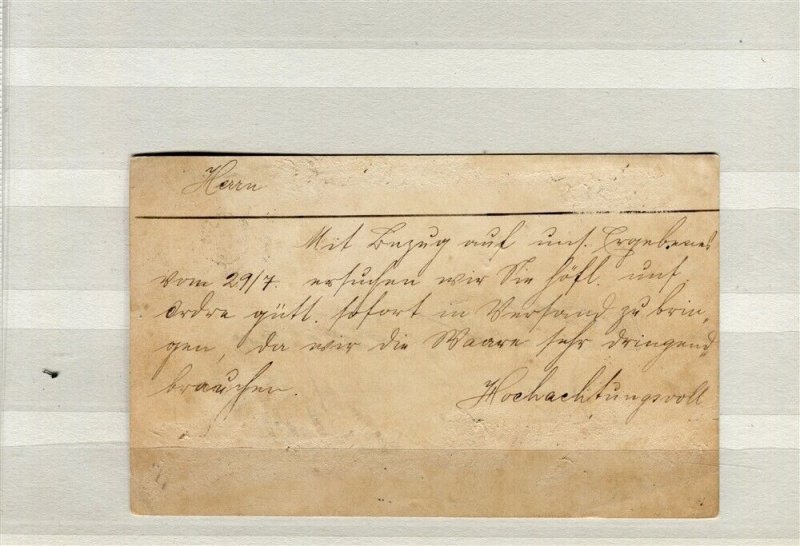 Herrn
Mit Bezug auf uns. Ergebenes
vom 29/7. ersuchen wir Sie höfl. uns.
Ordre gütl. sofort in Versand zu brin,
gen, da wir die Waare sehr dringend
brauchen.
Hochachtungsvoll